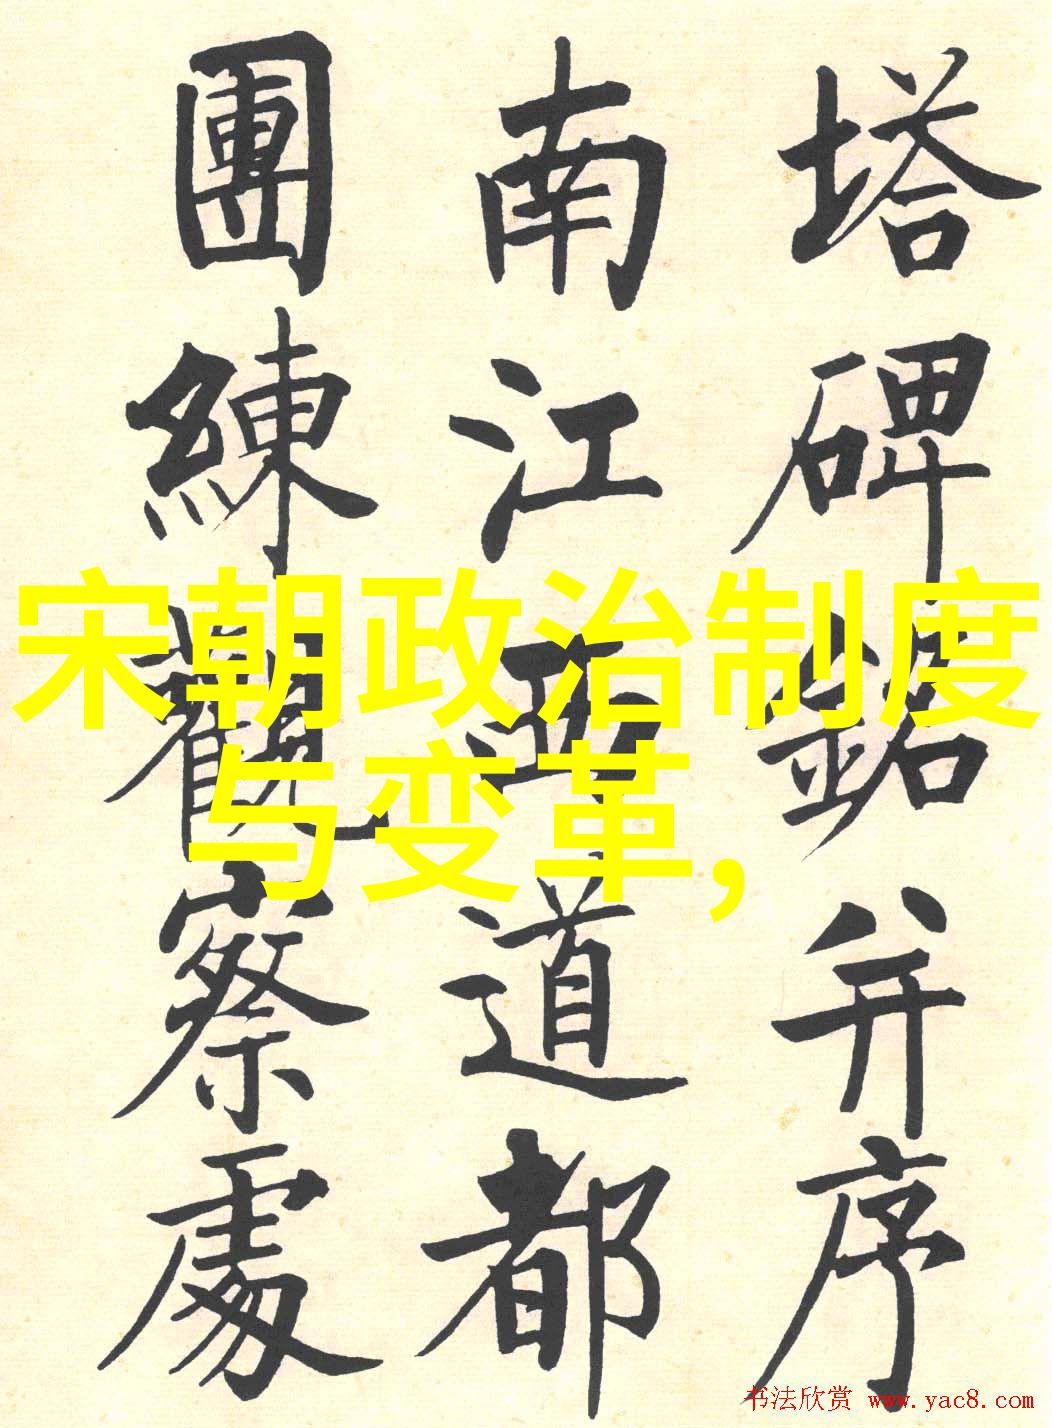 塔碑銘并序
南江西道都
團練觀察處
宋朝政治制度
与变革,
书法欣赏 www.yac8.com